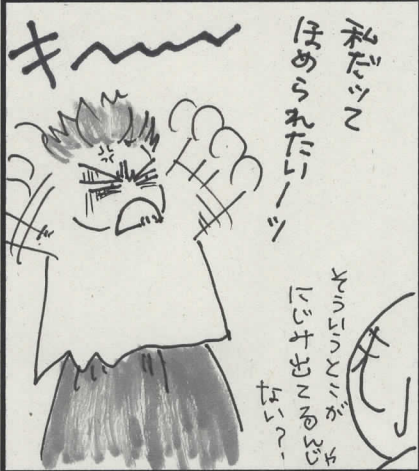 私だッて
ほめられたいーッ
キ〜〜〜
そういうとこが
にじみ出てるんじゃ
ない?